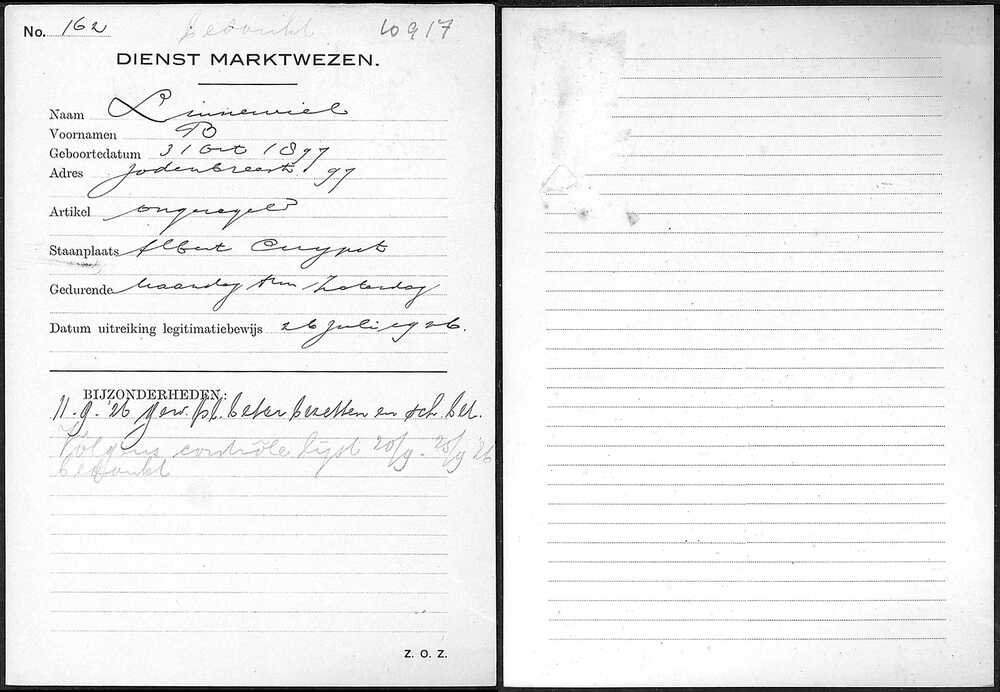 No. 162 bedankt 10917
DIENST MARKTWEZEN.
Naam Linnewiel
Voornamen B
Geboortedatum 31 Oct 1897
Adres Jodenbreestr 97
Artikel ongeregeld
Staanplaats Albert Cuypst
Gedurende Maandag t/m Zaterdag
Datum uitreiking legitimatiebewijs 26 Juli 1926.
BIJZONDERHEDEN:
11.9.'26 gew. pl. beter bezetten en sch. bet.
Volgens contrôle lijst 20/9 - 25/9 26
bedankt
Z. O. Z.